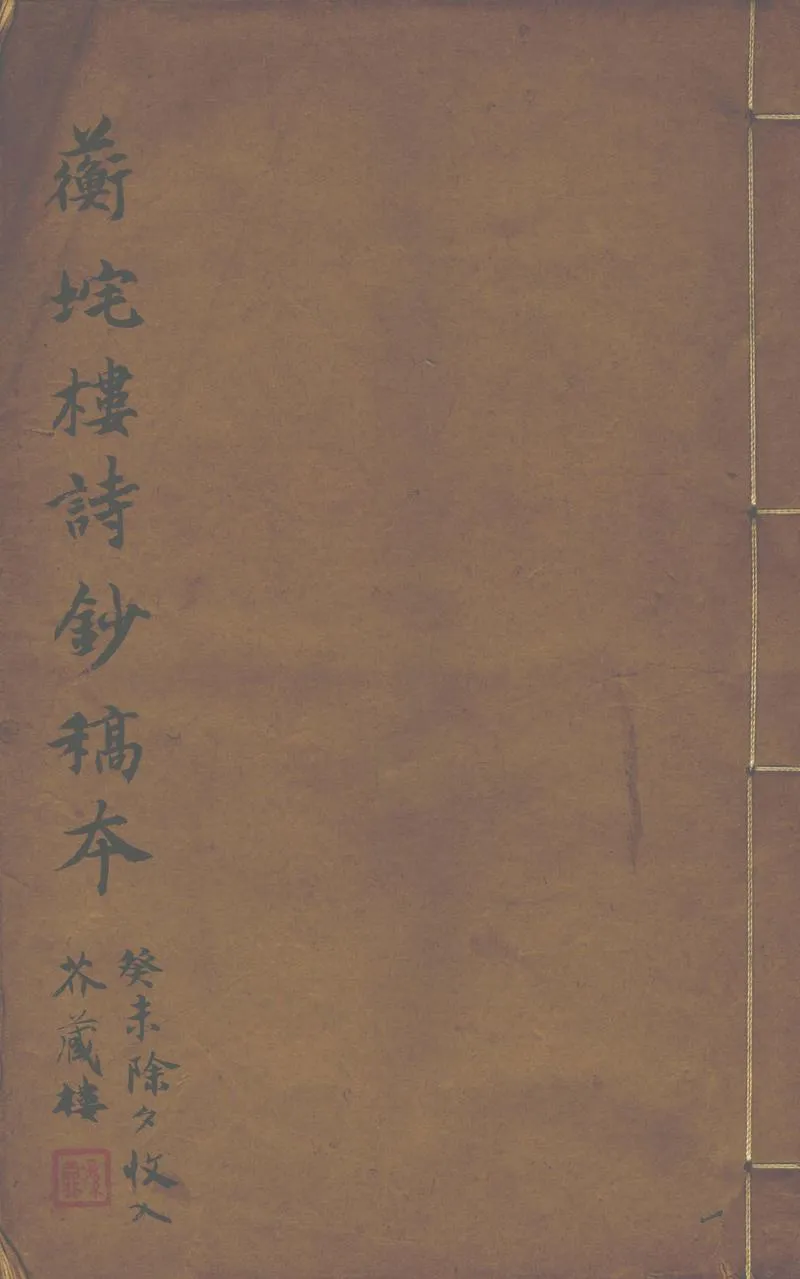 蘅垞樓詩鈔稿本
癸未除夕收入
芥藏樓